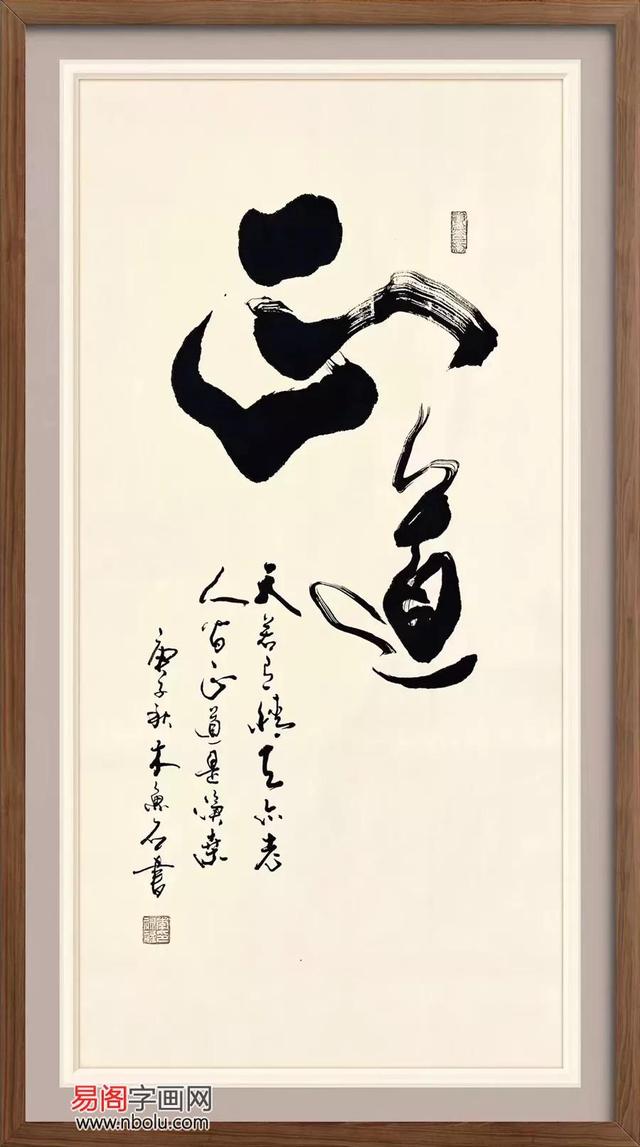 正道
天若有情天亦老
人間正道是滄桑
庚子秋木魚石書
易阁字画网
www.nbolu.com